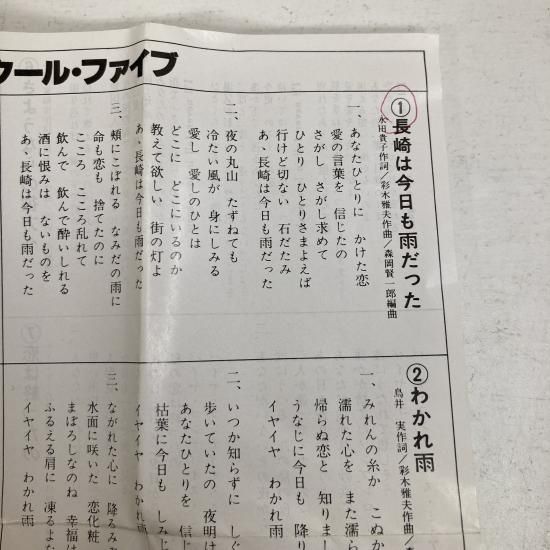 クール・ファイブ
①長崎は今日も雨だった
永田貴子作詞/彩木雅夫作曲/森岡賢一郎編曲
一、あなたひとりに かけた恋
愛の言葉を 信じたの
さがし さがし求めて
ひとり ひとりさまよえば
行けど切ない 石だたみ
あゝ長崎は今日も雨だった
二、夜の丸山 たずねても
冷たい風が 身にしみる
愛し 愛しのひとは
どこに どこにいるのか
教えて欲しい 街の灯よ
あゝ長崎は今日も雨だった
三、頬にこぼれる なみだの雨に
命も恋も 捨てたのに
こころ こころ乱れて
飲んで 飲んで酔いしれる
酒に恨みは ないものを
あゝ長崎は今日も雨だった
②わかれ雨
鳥井 実作詞/彩木雅夫作曲/森
一、みれんの糸か こぬか
濡れた心を また濡ら
帰らぬ恋と 知りまし
うなじに今日も 降り
イヤイヤ わかれ雨
二、いつか知らずに しぐ
歩いていたの 夜明け
あなたひとりを 信じ
枯葉に今日も しみじ
イヤイヤ わかれ
三、ながれた心に 降るみ
水面に咲いた 恋化粧
まぼろしなのね 幸福は
ふるえる肩に 凍るよな
イヤイヤ わかれ雨